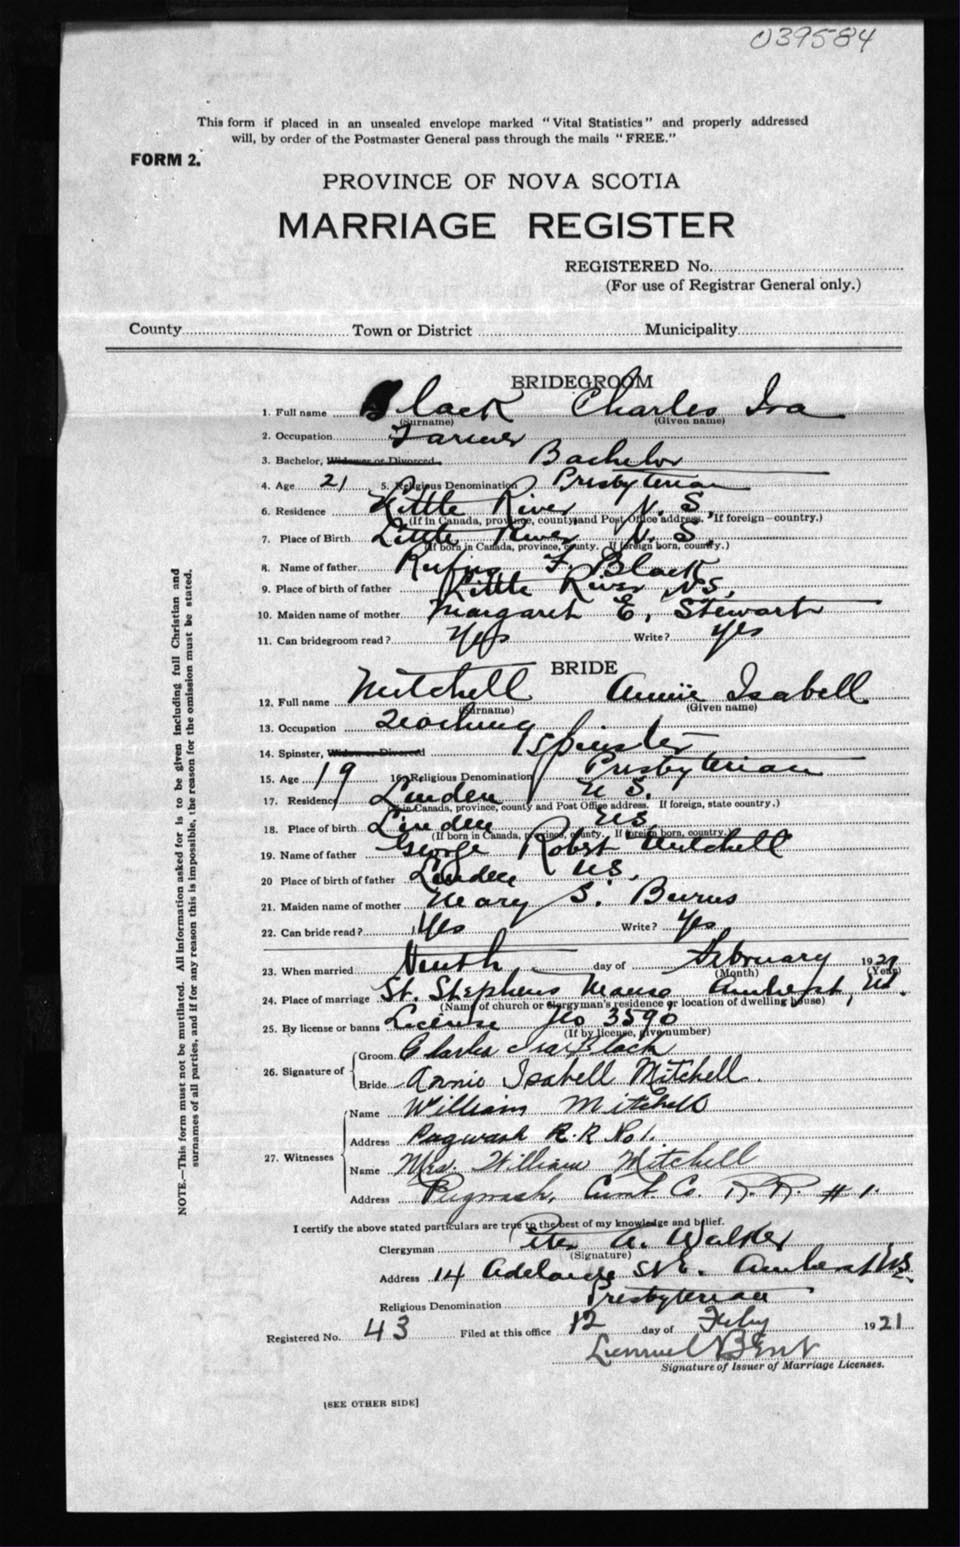 039584
This form if placed in an unsealed envelope marked "Vital Statistics" and properly addressed
will, by order of the Postmaster General pass through the mails "FREE."
FORM 2.
PROVINCE OF NOVA SCOTIA
MARRIAGE REGISTER
REGISTERED No.
(For use of Registrar General only.)
County Town or District Municipality
BRIDEGROOM
1. Full name Black Charles Ira
(Surname) (Given name)
2. Occupation Farmer
3. Bachelor, Widower or Divorced Bachelor
4. Age 21 5. Religious Denomination Presbyterian
6. Residence Little River N.S.
(If in Canada, province, county and Post Office address. If foreign—country.)
7. Place of Birth Little River N.S.
(If born in Canada, province, county. If foreign born, country.)
8. Name of father Rufus F. Black
9. Place of birth of father Little River N.S.
10. Maiden name of mother Margaret E. Stewart
11. Can bridegroom read? Yes Write? Yes
BRIDE
12. Full name Mitchell Annie Isabell
(Surname) (Given name)
13. Occupation Teaching
14. Spinster, Widow or Divorced Spinster
15. Age 19 16. Religious Denomination Presbyterian
17. Residence Linden N.S.
(If in Canada, province, county and Post Office address. If foreign, state country.)
18. Place of birth Linden N.S.
(If born in Canada, province, county. If foreign born, country.)
19. Name of father George Robert Mitchell
20 Place of birth of father Linden N.S.
21. Maiden name of mother Mary S. Burns
22. Can bride read? Yes Write? Yes
23. When married Ninth day of February 1921
(Month) (Year)
24. Place of marriage St. Stephens Manse Amherst, N.S.
(Name of church or clergyman's residence or location of dwelling house)
25. By license or banns License No 3590
(If by license, give number)
26. Signature of Groom Charles Ira Black
Bride Annie Isabell Mitchell.
27. Witnesses Name William Mitchell
Address Pugwash R.R No 1.
Name Mrs. William Mitchell
Address Pugwash, Cumb. Co. R.R. #1.
I certify the above stated particulars are true to the best of my knowledge and belief.
Clergyman A. Walker
(Signature)
Address 14 Adelaide St E. Amherst NS
Religious Denomination Presbyterian
Registered No. 43 Filed at this office 12 day of Feby 1921
Lemuel Bent
Signature of Issuer of Marriage Licenses.
[SEE OTHER SIDE]
NOTE.—This form must not be mutilated. All information asked for is to be given including full Christian and
surnames of all parties, and if for any reason this is impossible, the reason for the omission must be stated.